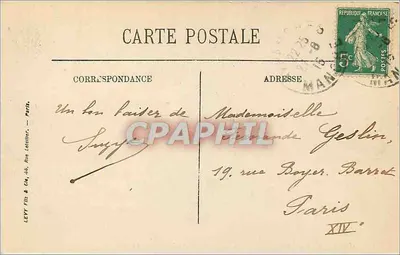 CARTE POSTALE
REPUBLIQUE FRANÇAISE
5c
POSTES
CORRESPONDANCE
ADRESSE
Un bon baiser de
Suzy
Mademoiselle
Geslin,
19, rue Boyer. Barret
Paris
XIV
CPAPHIL
LEVY Fils & Cie, Paris.